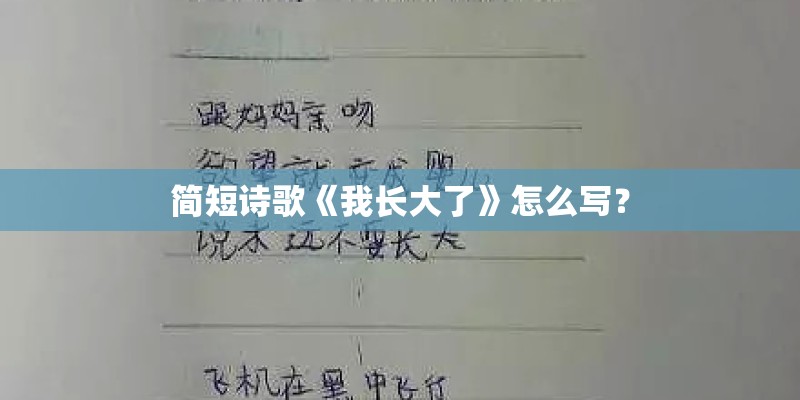 跟妈妈亲吻
欲望就变成婴儿
简短诗歌《我长大了》怎么写？
说永远不要长大
飞机在黑中飞行